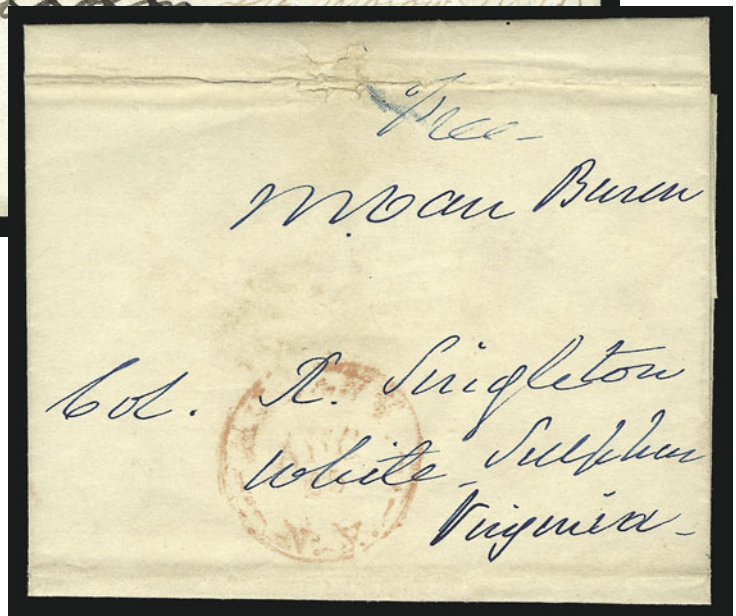 Free
M. Van Buren
Col. R. Singleton
White Sulphur
Virginia